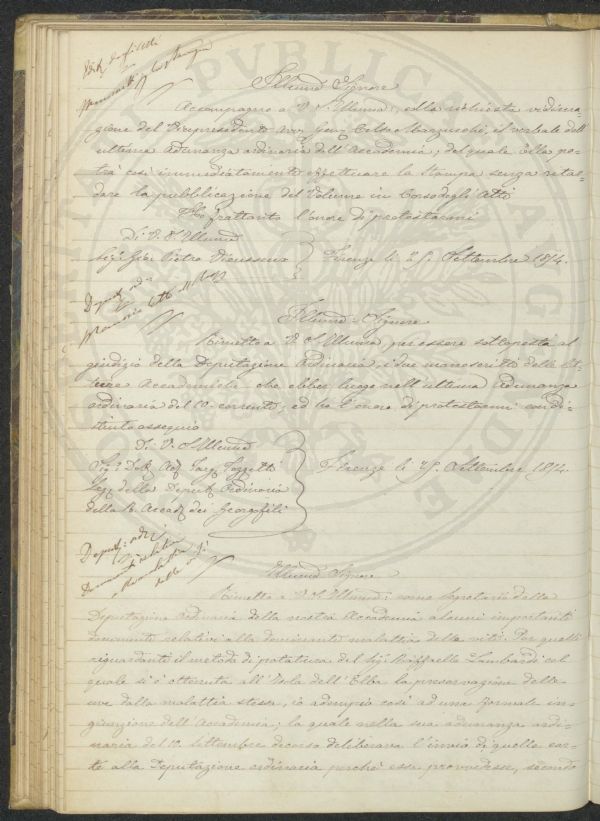 Illmo Signore
Accompagno a V. S. Illma, colla richiesta vidima-
zione del Vicepresidente Avv. Celso Marzucchi, il verbale dell'
ultima adunanza ordinaria dell'Accademia; del quale Ella po-
trà così immediatamente effettuare la stampa senza retar-
dare la pubblicazione del Volume in Corso degli Atti
Ho frattanto l'onore di protestarmi
Di V. S. Illma
Sig. Gio. Pietro Vieusseux
Firenze li 25. Settembre 1854.
Deputaz. ord.
Illmo Signore
Rimetto a V. S. Illma per essere sottoposti al
giudizio della Deputazione Ordinaria, i due manoscritti delle let-
ture Accademiche che ebber luogo nell'ultima adunanza
ordinaria del 10. corrente; ed ho l'onore di protestarmi con di-
stinto ossequio
Di V. S. Illma
Sig. Dott. Targ. Tozzetti
Seg. della Deputaz. Ordinaria
della R. Accad. dei Georgofili
Firenze li 25. Settembre 1854.
Deputaz. ord.
Documenti relativi
alla malattia
delle viti
Illmo Signore
Rimetto a V. S. Illma, come Segretario della
Deputazione ordinaria della nostra Accademia alcuni importanti
documenti relativi alla dominante malattia delle viti. Per quelli
riguardanti il metodo di potatura del Sig. Raffaello Lambardi col
quale si è ottenuta all'Isola dell'Elba la preservazione delle
uve dalla malattia stessa, io adempio così ad una formale in-
giunzione dell'Accademia; la quale nella sua adunanza ordi-
naria del 10. Settembre decorso deliberava l'invio di quelle car-
te alla Deputazione ordinaria perchè essa provvedesse, secondo